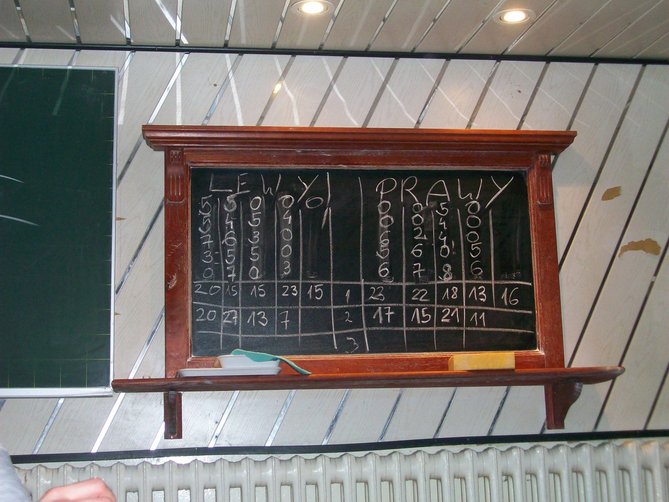 LEWY PRAWY
5 5 0 0 0 0 0 5 0
3 4 5 4 0 0 4 0
7 6 3 0 8 2 4 0
3 5 5 0 5 6 0 5
0 7 0 3 6 7 8 6
20 15 15 23 15 1 23 22 18 13 16
20 27 13 7 2 17 15 21 11
3